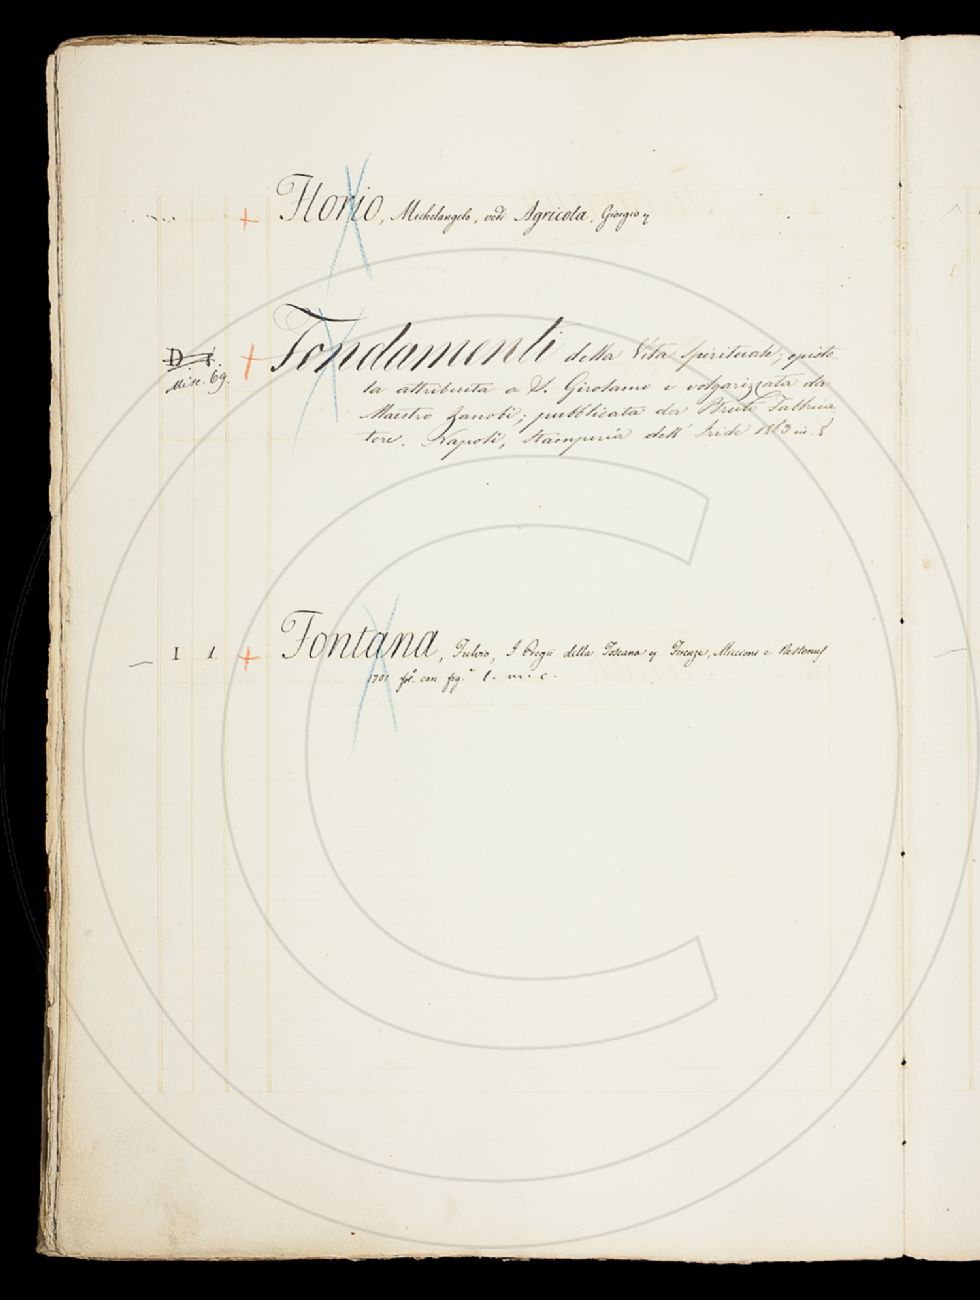 + Florio, Michelangelo, vedi Agricola, Giorgio
+ Fondamenti della Vita Spirituale; episto
Misc. 69. la attribuita a S. Girolamo e volgarizzata da
Maestro Zanobi; pubblicata da Bruto Fabbrica
tore. Napoli, Stamperia dell' Iride 1863 in 8
1 1. + Fontana, Fulvio, I Pregii della Toscana Firenze, Miccioni e Nestenus
1701 fol. con fig. l. m. c.